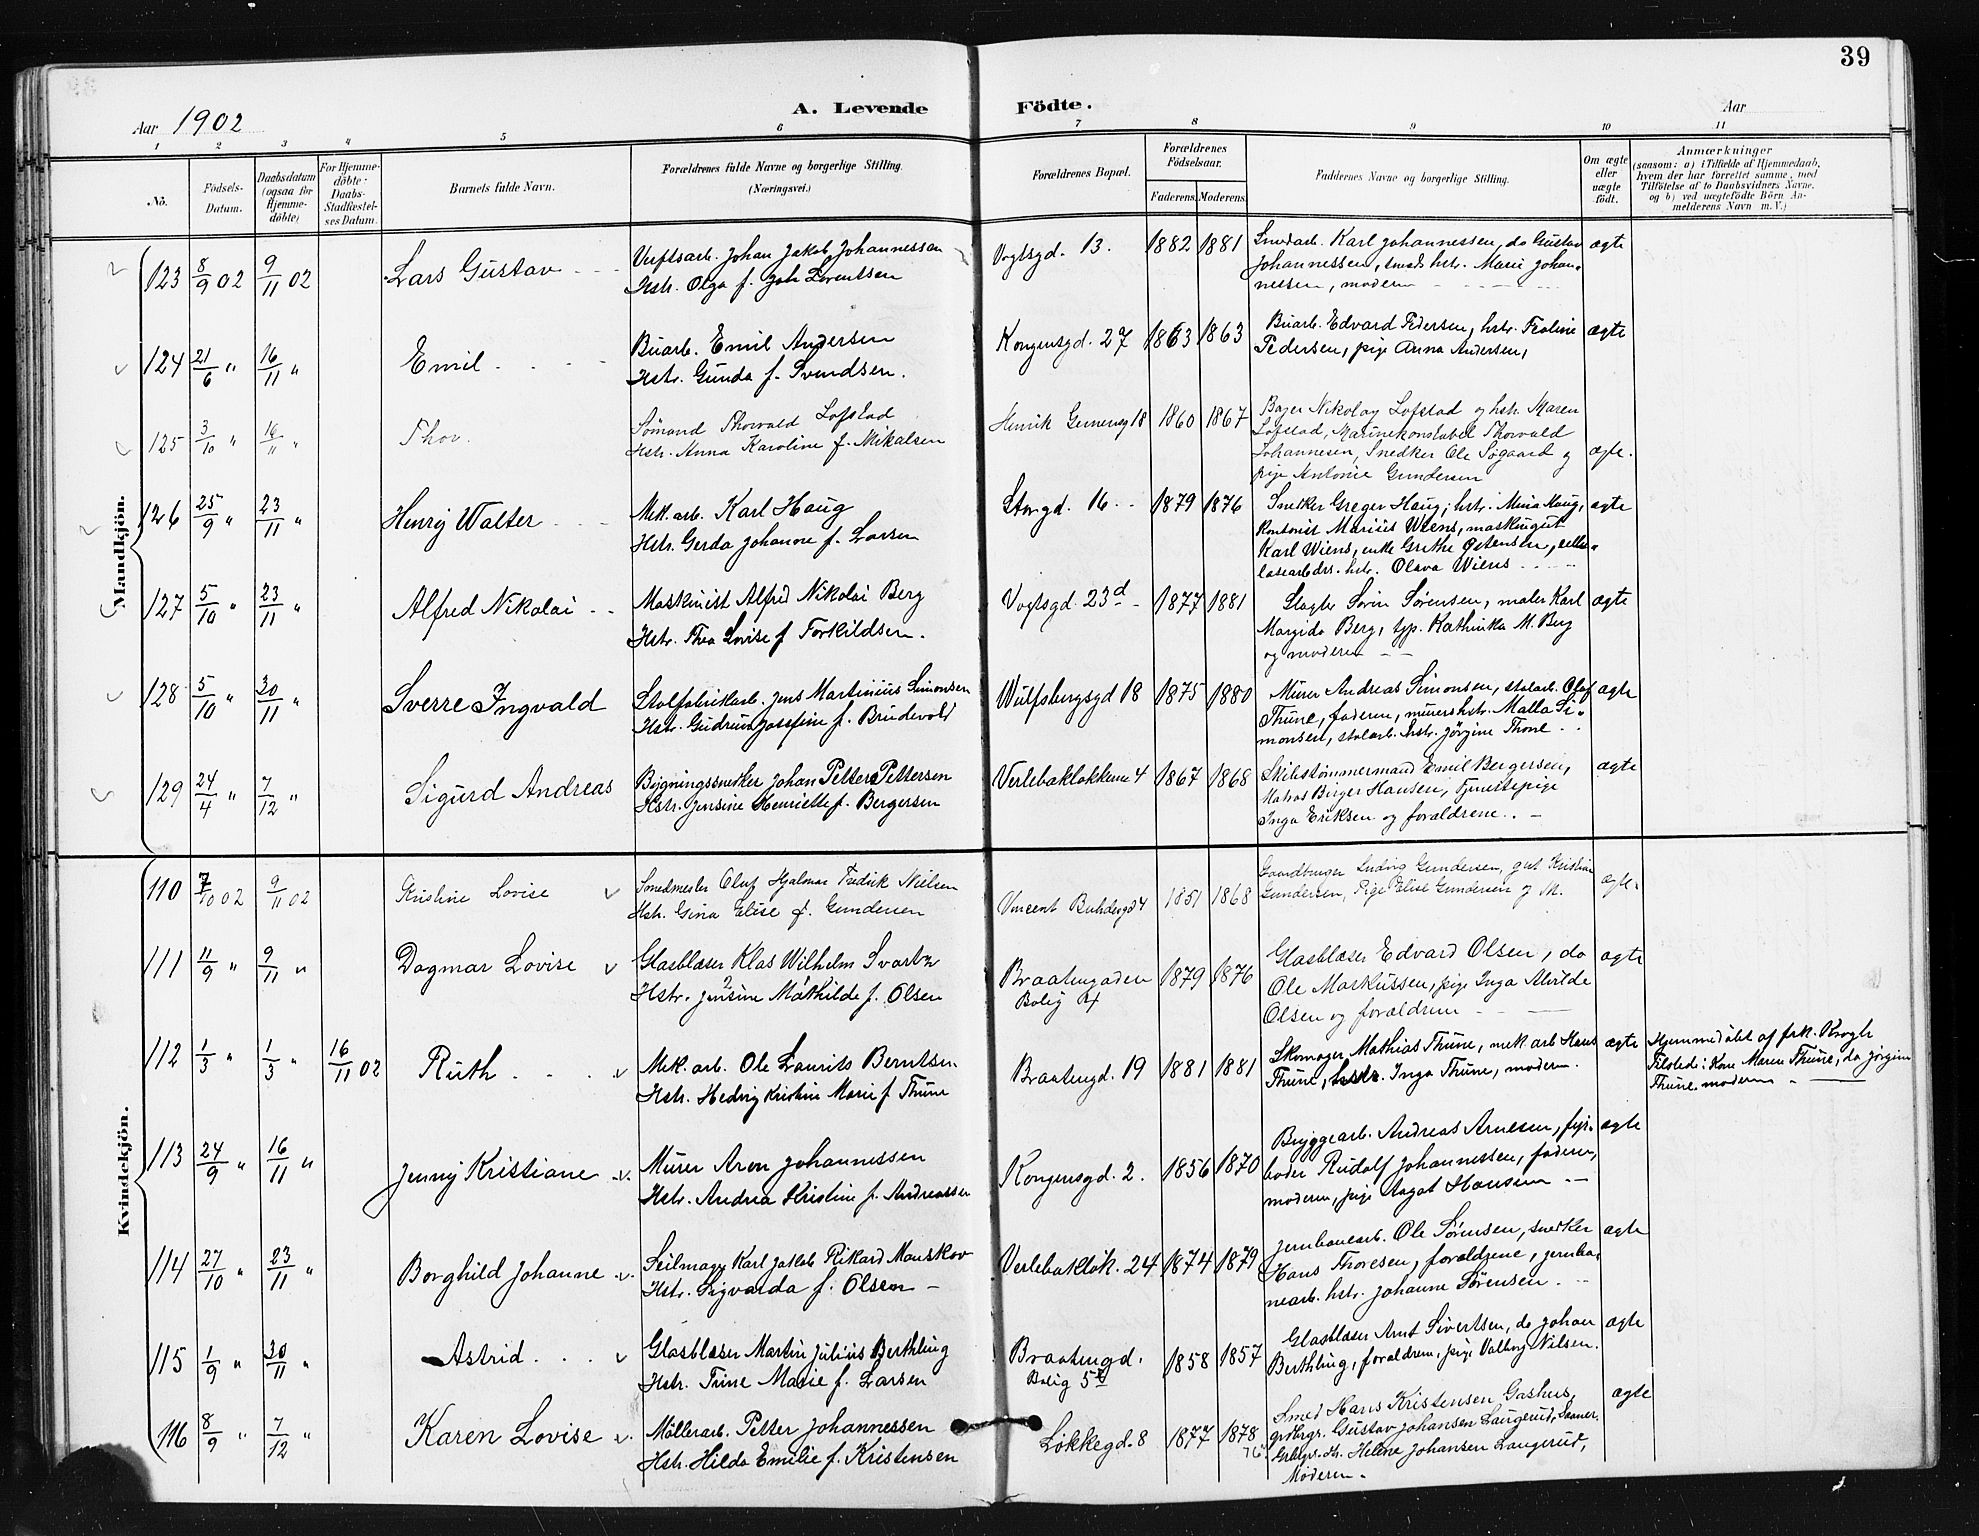 39
Aar 1902
A. Levende Födte.
Aar
1 2 3 4 5 6 7 8 9 10 11
No.
Födsels-Datum.
Daabsdatum (ogsaa for Hjemme-döbte)
For Hjemme-döbte: Daabs-Stadfæstel-ses Datum.
Barnets fulde Navn.
Forældrenes fulde Navne og borgerlige Stilling.
(Næringsvei.)
Forældrenes Bopæl.
Forældrenes Födselsaar.
Faderens. Moderens.
Faddernes Navne og borgerlige Stilling.
Om ægte eller uægte födt.
Anmærkninger
(saasom: a) i Tilfælde af Hjemmedaab,
hvem der har forrettet samme, med
Tilföielse af to Daabsvidners Navne.
og b) ved uægtefödte Börn An-
melderens Navn m. V.)
Mandkjön.
123 8/9 02 9/11 02 Lars Gustav
Verftsarb. Johan Jakob Johannessen
Hstr. Olga f. Lorentsen
Vogtsgd. 13. 1882 1881
Smedarb. Karl Johannessen, do Gustav
Johannessen, smeds hstr. Marie Johan-
nessen, moderen
ægte
124 21/6 " 16/11 " Emil
Buarb. Emil Andersen
Hstr. Gunda f. Svendsen.
Kongensgd. 27 1863 1863
Buarb. Edvard Pedersen, hstr.
Pedersen, pige Anna Andersen,
ægte
125 3/10 " 16/11 " Thor.
Sömand Thorvald Lofstad
Hstr. Anna Karoline f. Mikalsen
1860 1867
Bager Nikolay Lofstad og hstr. Maren
Lofstad, Marinekonstabel Thorvald
Johannesen, Snedker Ole Søgaard og
pige Antonie Gundersen
ægte.
126 25/9 " 23/11 " Henry Walter
Mek. arb. Karl Haug
Hstr. Gerda Johanne f. Larsen
Storgd. 16 1879 1876
Snekker Greger Haug, hstr. Mina Haug,
Kontorist Marius Wiens, maskingut
Karl Wiens, enke Grethe Østensen, cellu-
losearbdrs. hstr. Olava Wiens
ægte
127 5/10 " 23/11 " Alfred Nikolai
Maskinist Alfred Nikolai Berg
Hstr. Thea Lovise f Torkildsen.
Vogtsgd. 23d 1877 1881
Slagter Sørensen, maler Karl
Berg, typ. Kathinka M. Berg
og moderen
ægte
128 5/10 " 30/11 " Sverre Ingvald
Stolfabrikarb. Jens Martinius Simonsen
Hstr. Gudrun Josefine f. Brudevold
Wulfsbergsgd 18 1875 1880
Murer Andreas Simonsen, stolarb. Olaf
Thune, faderen, murers hstr. Malla Si-
monsen, stolarb. hstr. Jørgine Thone
ægte
129 24/4 " 7/12 " Sigurd Andreas
Bygningssnekker Johan Petter Pettersen
Hstr. Jensine Henriette f. Bergersen
Verlebaklökkene 4 1867 1868
Skibstømmermand Emil Bergersen,
Matros Birger Hansen, Tjenestepige
Inga Eriksen og forældrene.
ægte
Kvindekjön.
110 7/10 02 9/11 02 Kristine Lovise
Smedmester Oluf Hjalmar Fredrik Nielsen
Hstr. Gina Elise f. Gundersen
Vincent Buhdesgd 4 1851 1868
Gaardbruger Ludvig Gundersen, gut Kristian
Gundersen, Pige Elise Gundersen og M.
ægte.
111 11/9 " 9/11 " Dagmar Lovise
Glasblæser Klas Wilhelm Svartz
Hstr. Jensine Mathilde f. Olsen
Braatengaden
Bolig 4
1879 1876
Glasblæser Edvard Olsen, do
Ole Markussen, pige Inga Alvilde
Olsen og forældrene
ægte
112 1/3 " 1/3 " 16/11 02 Ruth
Mek. arb. Ole Laurits Berntsen
Hstr. Hedvig Kristine Marie f Thune
Braatengd. 19 1881 1881
Skomager Mathias Thune, mek arb Hans
Thune, hstr. Inga Thune, moderen.
ægte
Hjemmedøbt af frk. Krogh
Tilstede: Kone Maren Thune, do Jørgine
Thune, moderen
113 24/9 " 16/11 " Jenny Kristiane
Murer Aron Johannessen
Hstr. Andrea Kristine f. Andreassen
Kongensgd. 2. 1856 1870
Bryggearb. Andreas Arnesen, fyr-
bøder Rudolf Johannessen, faderen,
moderen, pige Aagot Hansen
ægte
114 27/10 " 23/11 " Borghild Johanne
Seilmager Karl Jakob Rikard Mauskov
Hstr. Sigvarda f. Olsen
Verlebaklök. 24 1874 1879
Jernbanearb. Ole Sørensen, snedker
Hans Thoresen, forældrene, jernba-
nearb. hstr. Johanne Sørensen.
ægte
115 1/9 " 30/11 " Astrid
Glasblæser Martin Julius Berthling
Hstr. Trine Marie f. Larsen
Braatengd.
Bolig 5
1858 1857
Glasblæser Arnt Sivertsen, do Johan
Berthling, forældrene, pige Valborg Nilsen.
ægte
116 8/9 " 7/12 " Karen Lovise
Möllerarb. Petter Johannessen
Hstr. Hilda Emilie f. Kristensen
Lökkegd. 8 1877 1878
76
Smed Hans Kristensen Gashus,
Gustav Johansen Laugerud, Sauer,
Helene Johansen Laugerud,
Moderen.
ægte